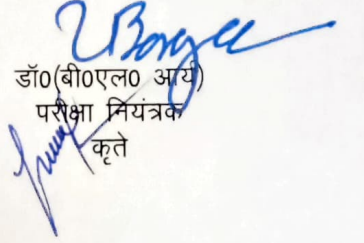 डॉ0(बी0एल0 आर्य)
परीक्षा नियंत्रक
कृते